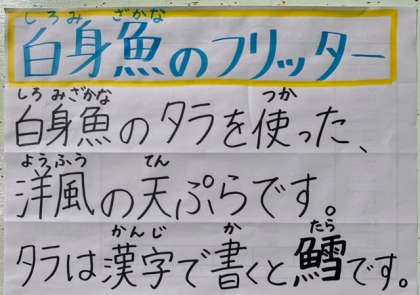 しろみ ざかな
白身魚のフリッター
しろ みざかな つか
白身魚のタラを使った、
ようふう てん
洋風の天ぷらです。
かんじ か たら
タラは漢字で書くと鱈です。